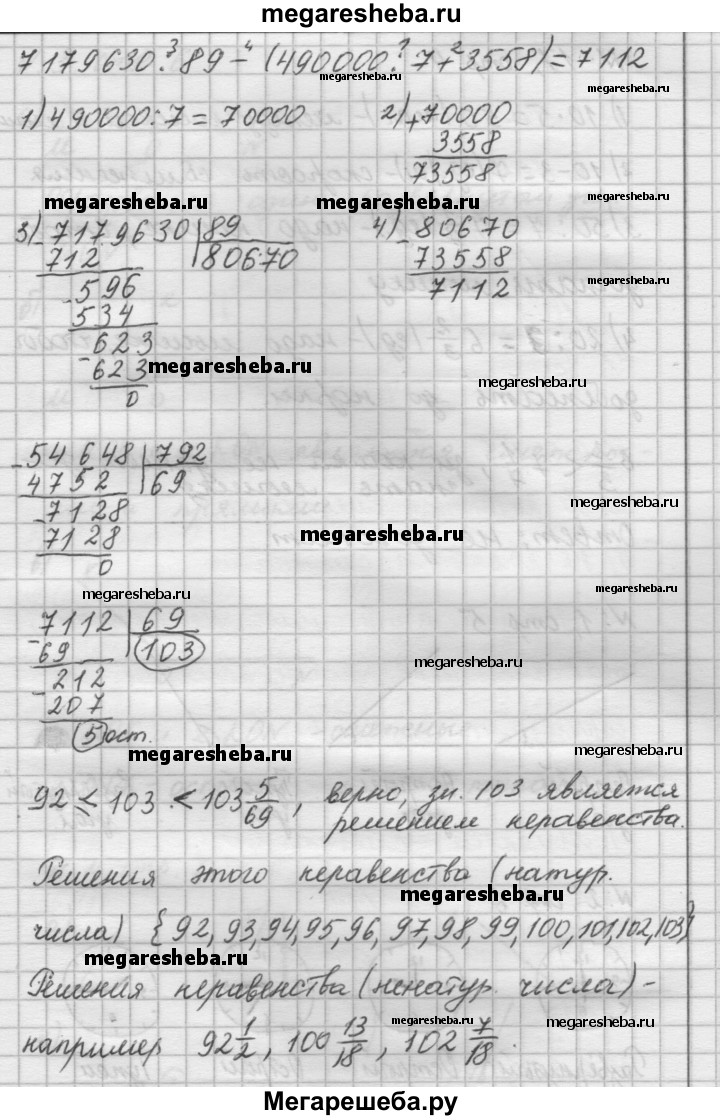 megaresheba.ru
7179630 :³ 89 -⁴ (490000 :¹ 7 +² 3558) = 7112
megaresheba.ru megaresheba.ru
1) 490000 : 7 = 70000 2) + 70000
3558
73558
megaresheba.ru
megaresheba.ru megaresheba.ru
3) - 7179630 | 89 4) - 80670
712 80670 73558
- 596 7112
megaresheba.ru
534
- 623
623 megaresheba.ru
0
megaresheba.ru
- 54648 | 792
4752 69
- 7128
7128
0
megaresheba.ru
megaresheba.ru megaresheba.ru
- 7112 | 69
69 103
- 212
207
megaresheba.ru
5 ост.
megaresheba.ru megaresheba.ru
92 ≤ 103 < 103 5/69 , верно, зн. 103 является
решением неравенства.
Решения этого неравенства (натур.
megaresheba.ru
числа) {92, 93, 94, 95, 96, 97, 98, 99, 100, 101, 102, 103}
megaresheba.ru
Решения неравенства (ненатур. числа) -
megaresheba.ru megaresheba.ru
например 92 1/2 , 100 13/18 , 102 7/18 .
Мегарешеба.ру